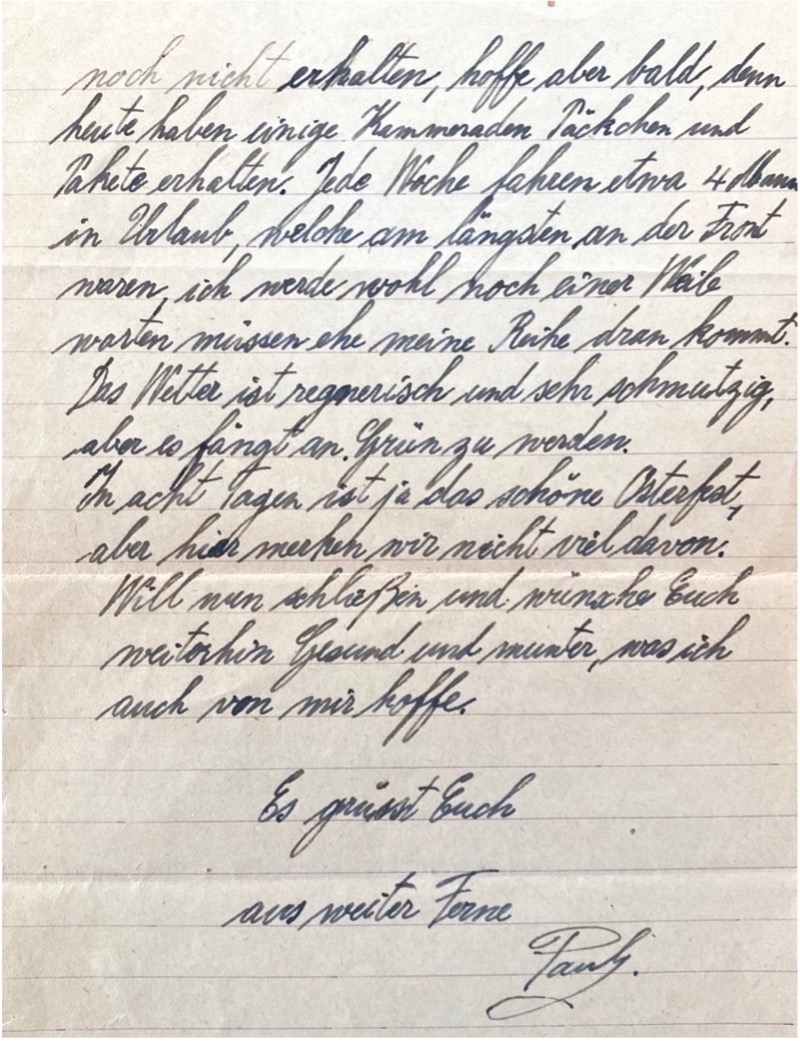 noch nicht erhalten, hoffe aber bald, denn
heute haben einige Kammeraden Päckchen und
Pakete erhalten. Jede Woche fahren etwa 4 Mann
in Urlaub, welche am längsten an der Front
waren, ich werde wohl noch einer Weile
warten müssen ehe meine Reihe dran kommt.
Das Wetter ist regnerisch und sehr schmutzig,
aber es fängt an Grün zu werden.
In acht Tagen ist ja das schöne Osterfest,
aber hier merken wir nicht viel davon.
Will nun schließen und wünsche Euch
weiterhin Gesund und munter, was ich
auch von mir hoffe.
Es grüsst Euch
aus weiter Ferne
Paul.